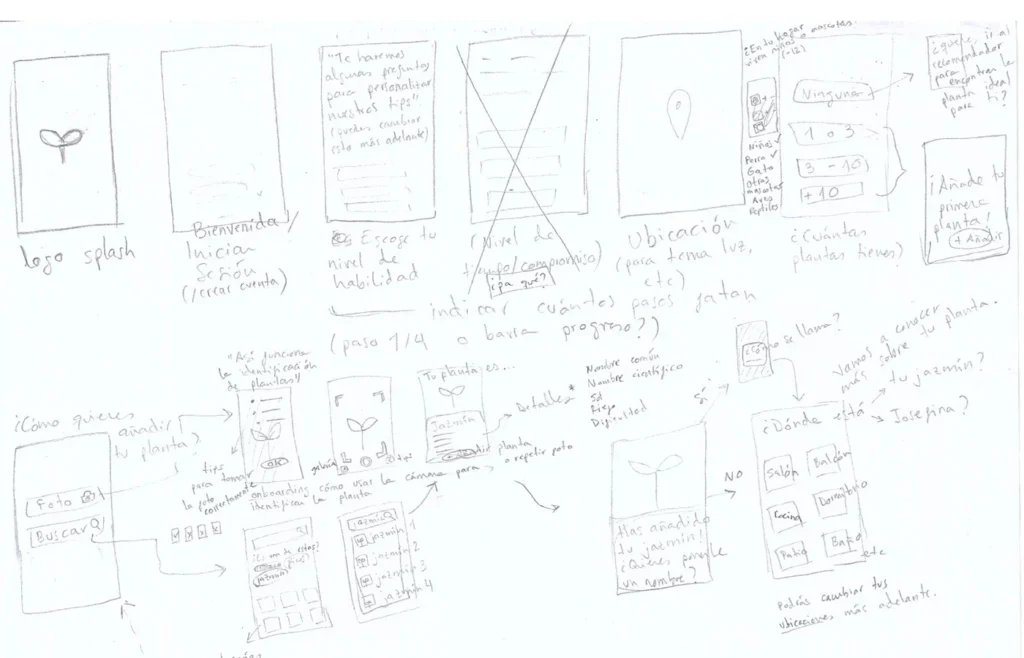 logo splash
Bienvenida/
Iniciar
Sesión
(/crear cuenta)
"Te haremos
algunas preguntas
para personalizar
nuestros tips"
(puedes cambiar
esto más adelante)
Escoge tu
nivel de
habilidad
(Nivel de
tiempo/compromiso)
¿pa qué?
Ubicación
(para tema luz,
etc)
¿En tu hogar
viven niños o mascotas?
(-12)
Niños ✓
Perro ✓
Gato
Otras
mascotas
Aves
Reptiles
Ninguna
1 o 3
3 - 10
+10
¿Cuántas
plantas tienes?
¿quieres ir al
recomendador
para
encontrar la
planta ideal
para ti?
¡Añade tu
primera
planta!
+ Añadir
indicar cuántos pasos faltan
(paso 1/4 o barra progreso?)
¿Cómo quieres
añadir
tu planta?
Foto
Buscar
"Así funciona
la identificación
de plantas"
OK
tips
para tomar
la foto
correctamente
galería
tips
onboarding cómo usar la cámara para
identificar la planta
Tu planta es...
Jazmín
Detalles*
Nombre común
Nombre científico
Sol
Riego
Dificultad
planta
o repetir foto
¿Es una de estas?
jazmín
jazmín
jazmín 1
jazmín 2
jazmín 3
jazmín 4
Has añadido
tu jazmín!
¿Quieres ponerle
un nombre?
Sí
NO
¿Cómo se llama?
Vamos a conocer
más sobre tu planta.
¿Dónde está
tu jazmín?
Josefina?
Salón
Balcón
Cocina
Dormitorio
Patio
Baño
etc
Podrás cambiar tus
ubicaciones más adelante.